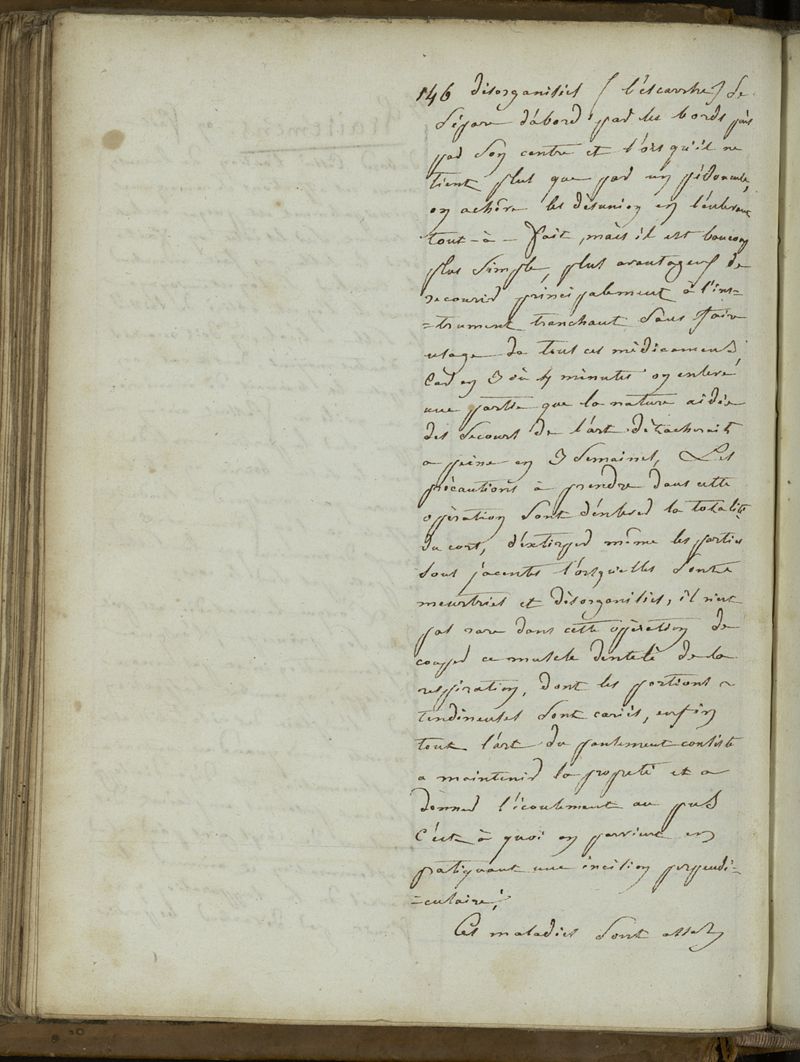 146 désorganisiés (l'éscarrhe) se
sépare d'abord par les bords puis
par son centre et lorsqu'il ne
tient plus que par un pédoncule,
on achêve les désunion en l'enlevant
tout-à-fait, mais il est baucoup
plus simple, plus avantageux de
recourir principalement à l'ins=
=trument tranchant sans faire
usage de tout ces médicamens
Car en 3 où 4 minutes on enlevé
une partie que la nature aidée
des secours de l'art détacherait
a peine en 3 semaines, Les
précautions à prendre dans cette
opération sont d'énlever la totalité
du cort, d'éxtirper même les parties
sous jacentes l'orsqu'elles sont
meurtries et désorganisiés, il n'est
pas rare dans cette opération de
couper ce muscle dentelé de la
respiration, dont les portions
tendineuses sont cariés, enfin
tout l'art du pansement consiste
a maintenir la propeté et a
donner l'écoulement au pus
C'est à quoi on parvient en
pratiquant une incision perpendi=
=culaire,
Ces maladies sont assez